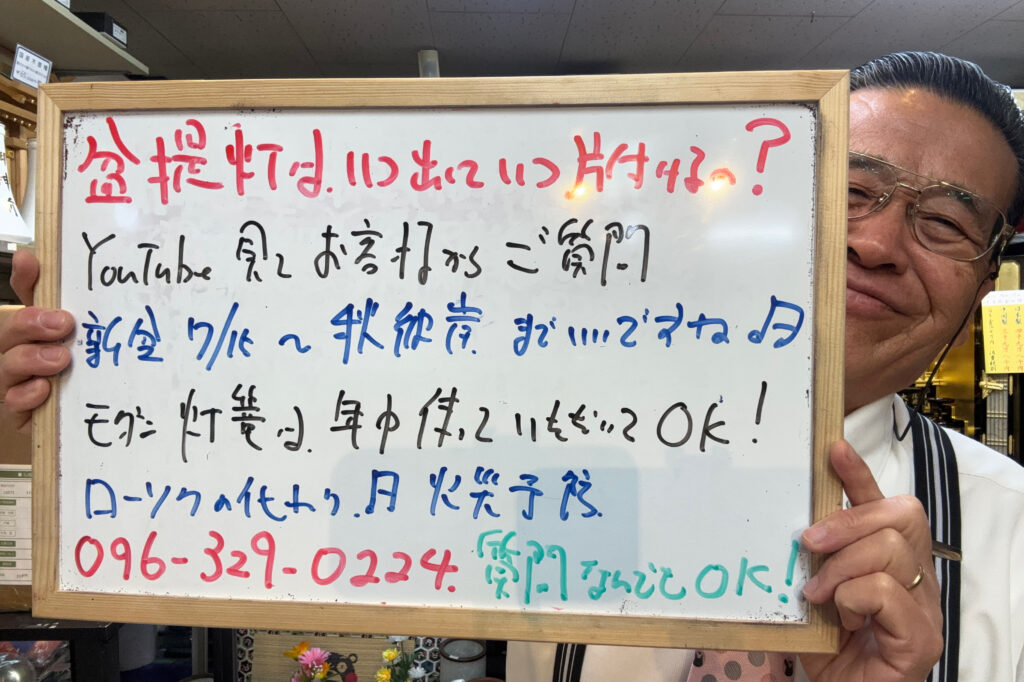 盆提灯は、いつ出していつ片付ける。?
YouTube 見て お客様から ご質問
新盆 7/1〜秋彼岸 までいいですね
モダン 灯篭は、年中使っていただいて OK!
ローソクの代わり、火災予防
096-329-0224. 質問なんでも OK!